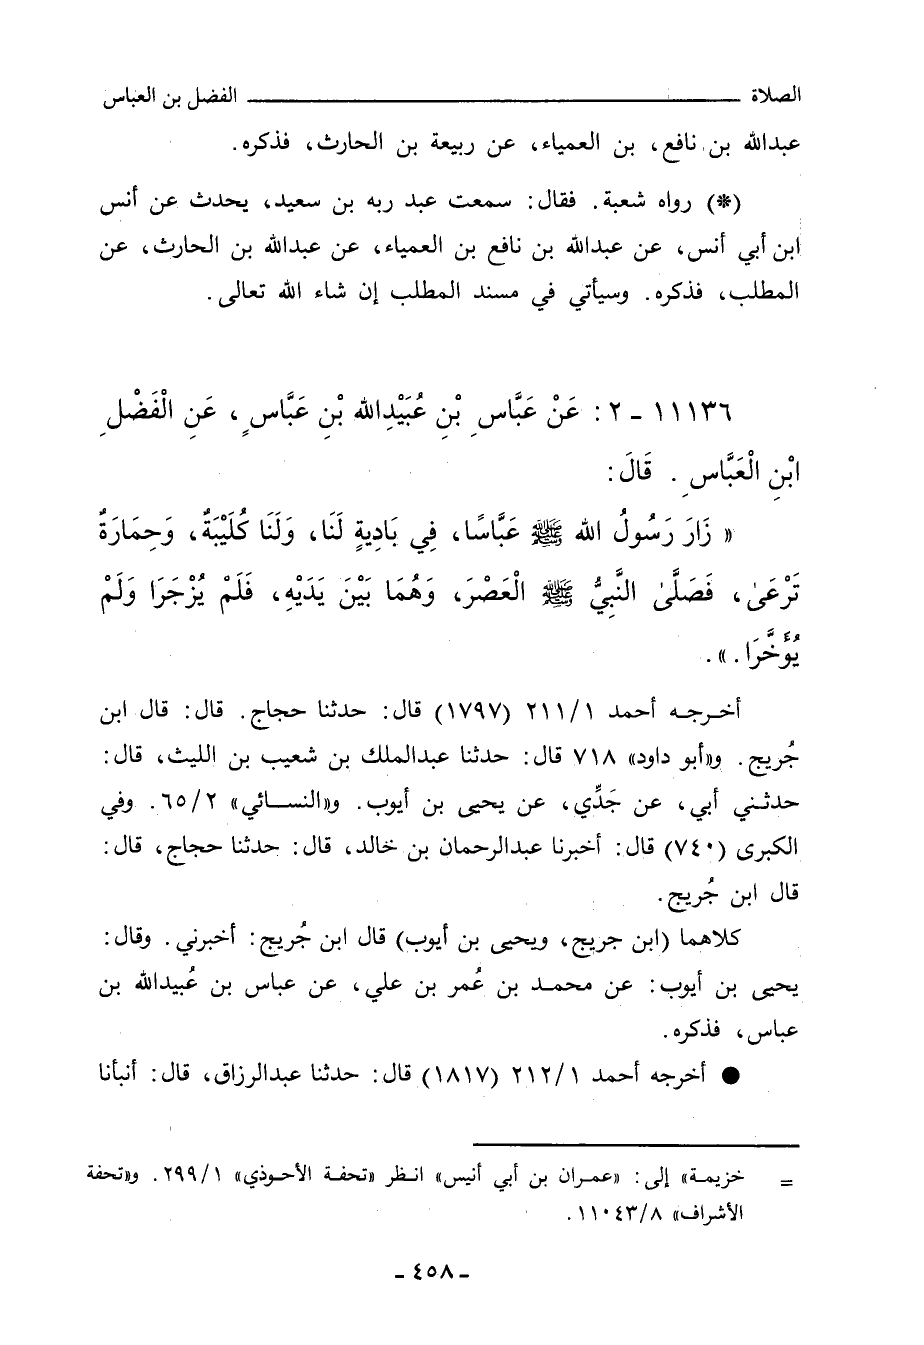 الصلاة ــــــــــــــــــــ الفضل بن العباس
عبدالله بن نافع، بن العمياء، عن ربيعة بن الحارث، فذكره.
(*) رواه شعبة. فقال: سمعت عبد ربه بن سعيد، يحدث عن أنس
ابن أبي أنس، عن عبدالله بن نافع بن العمياء، عن عبدالله بن الحارث، عن
المطلب، فذكره. وسيأتي في مسند المطلب إن شاء الله تعالى.
١١١٣٦ ـ ٢: عَنْ عَبَّاسِ بْنِ عُبَيْدِالله بْنِ عَبَّاسٍ، عَنِ الْفَضْلِ
ابْنِ الْعَبَّاسِ. قَالَ:
« زَارَ رَسُولُ الله ﷺ عَبَّاسًا، فِي بَادِيةٍ لَنَا، وَلَنَا كُلَيْبَةٌ، وَحِمَارَةٌ
تَرْعَىٰ، فَصَلَّىٰ النَّبِيُّ ﷺ الْعَصْرَ، وَهُمَا بَيْنَ يَدَيْهِ، فَلَمْ يُزْجَرَا وَلَمْ
يُؤَخَّرَا.».
أخرجه أحمد ٢١١/١ (١٧٩٧) قال: حدثنا حجاج. قال: قال ابن
جُريج. و«أبو داود» ٧١٨ قال: حدثنا عبدالملك بن شعيب بن الليث، قال:
حدثني أبي، عن جَدِّي، عن يحيى بن أيوب. و«النسائي» ٦٥/٢. وفي
الكبرى (٧٤٠) قال: أخبرنا عبدالرحمان بن خالد، قال: حدثنا حجاج، قال:
قال ابن جُريج.
كلاهما (ابن جريج، ويحيى بن أيوب) قال ابن جُريج: أخبرني. وقال:
يحيى بن أيوب: عن محمد بن عُمر بن علي، عن عباس بن عُبيدالله بن
عباس، فذكره.
● أخرجه أحمد ٢١٢/١ (١٨١٧) قال: حدثنا عبدالرزاق، قال: أنبأنا
= خزيمة» إلى: «عمران بن أبي أنيس» انظر «تحفة الأحوذي» ٢٩٩/١. و«تحفة
الأشراف» ١١٠٤٣/٨.
ـ ٤٥٨ ـ